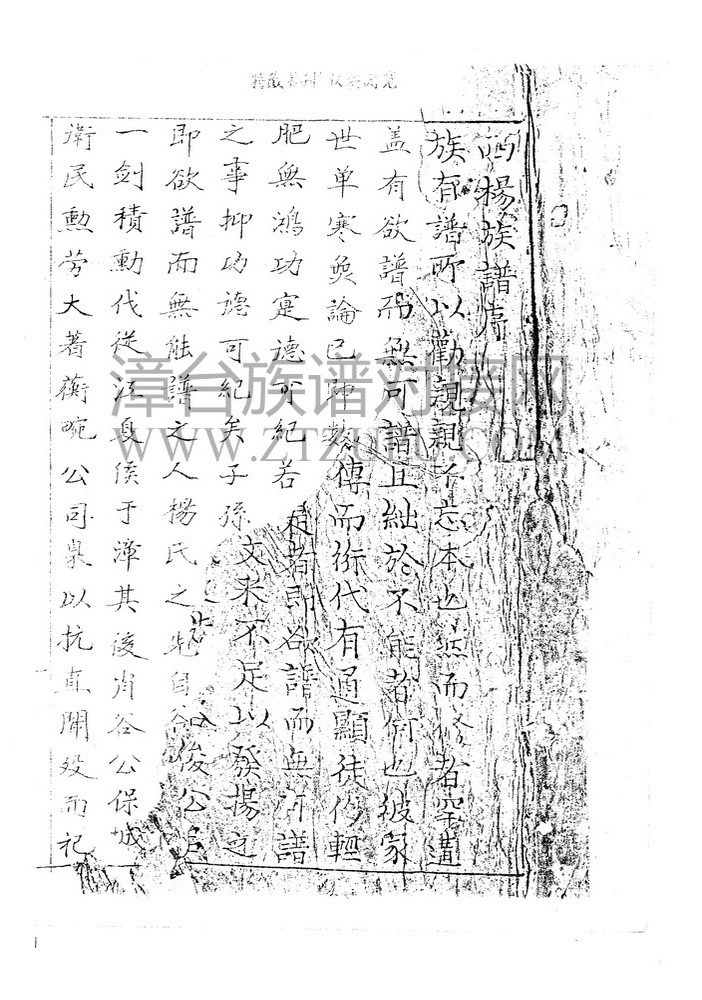 楊族譜序
族有譜所以勸親親不忘本也然而修者罕遘
盖有欲譜而無可譜且絀於不能者何也彼家
世单寒奠論已陣数傳而後代有通顯徒仍輕
肥無鴻功寔德可紀若是者即欲譜而無所譜
之事抑功德可紀矣子孫文采不足以發揚之
即欲譜而無能譜之人楊氏之先自俊公
一劍積勳代從江夏侯于漳其後肖谷公保城
衛民勳劳大著蘅畹公司臬以抗直聞殁而祀
漳台族谱对接网
WWW.ZTZUPU.COM